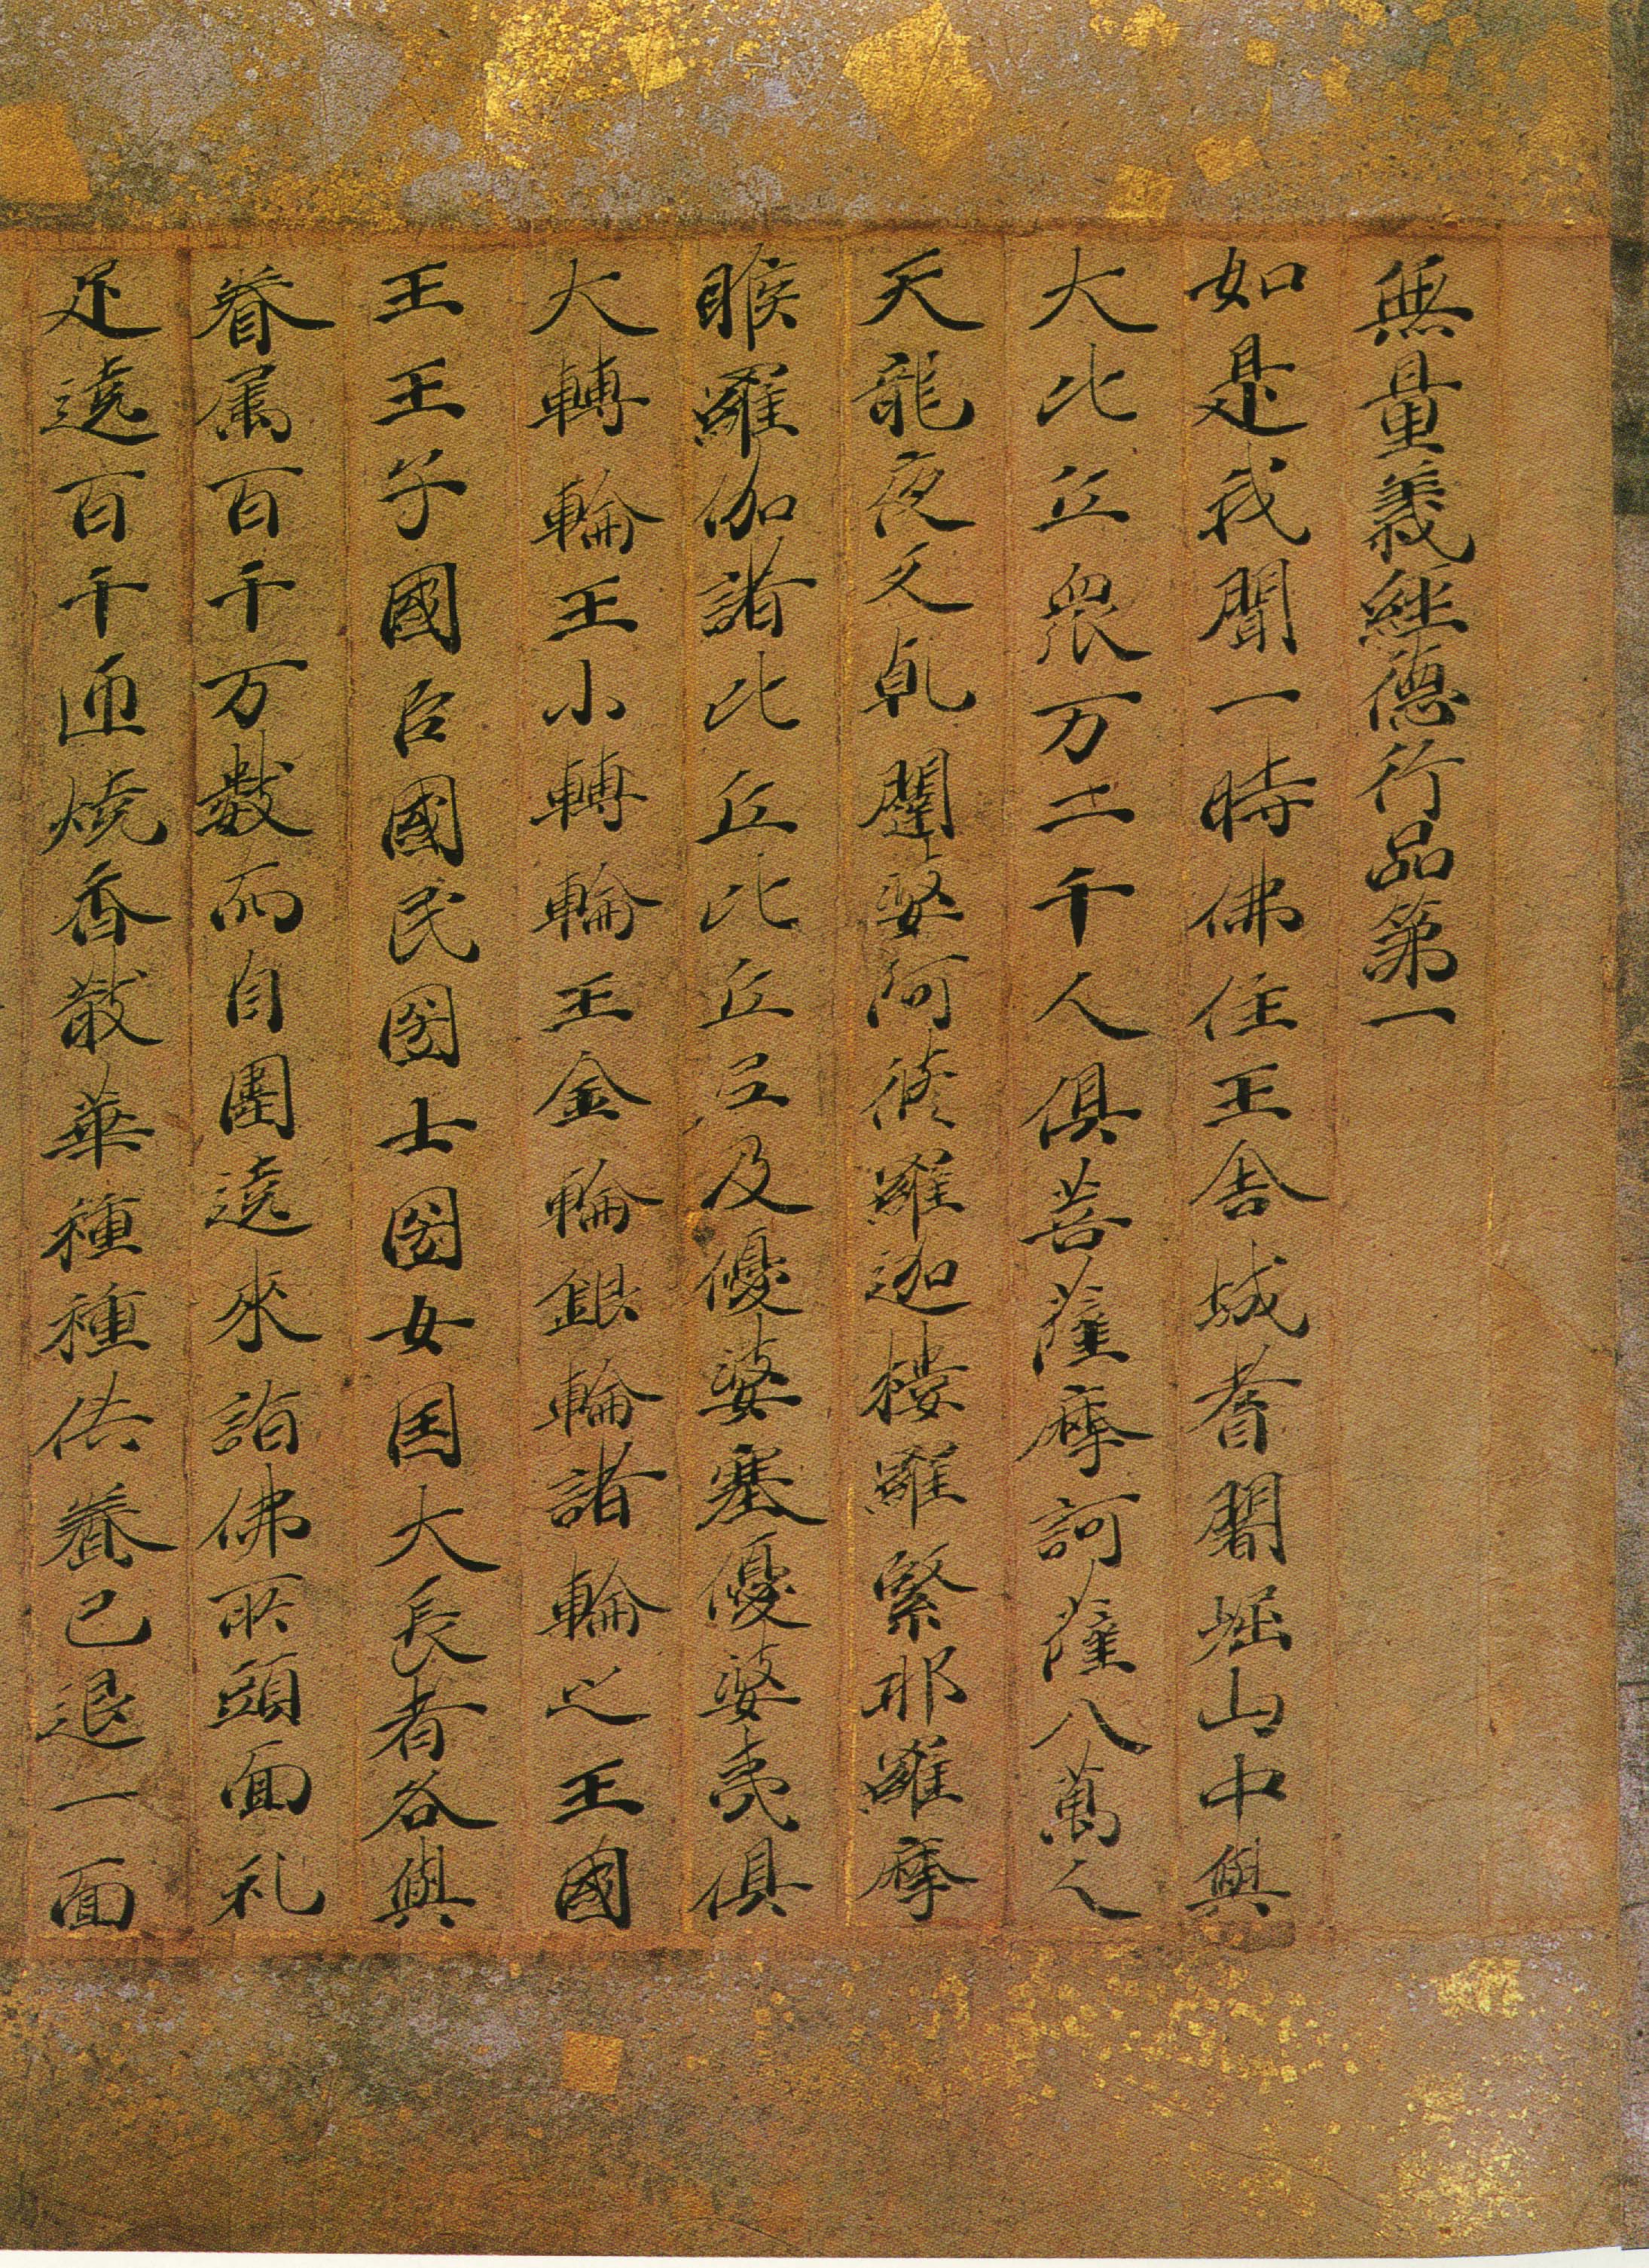 無量義経徳行品第一
如是我聞一時佛住王舎城耆闍堀山中與
大比丘衆万二千人俱菩薩摩訶薩八萬人
天龍夜叉乹闥婆阿脩羅迦樓羅緊那羅摩
睺羅伽諸比丘比丘尼及優婆塞優婆夷俱
大轉輪王小轉輪王金輪銀輪諸輪之王國
王王子國臣國民圀士圀女囯大長者各與
眷属百千万數而自圍遶來詣佛所頭面礼
足遶百千匝燒香散華種種供養已退一面